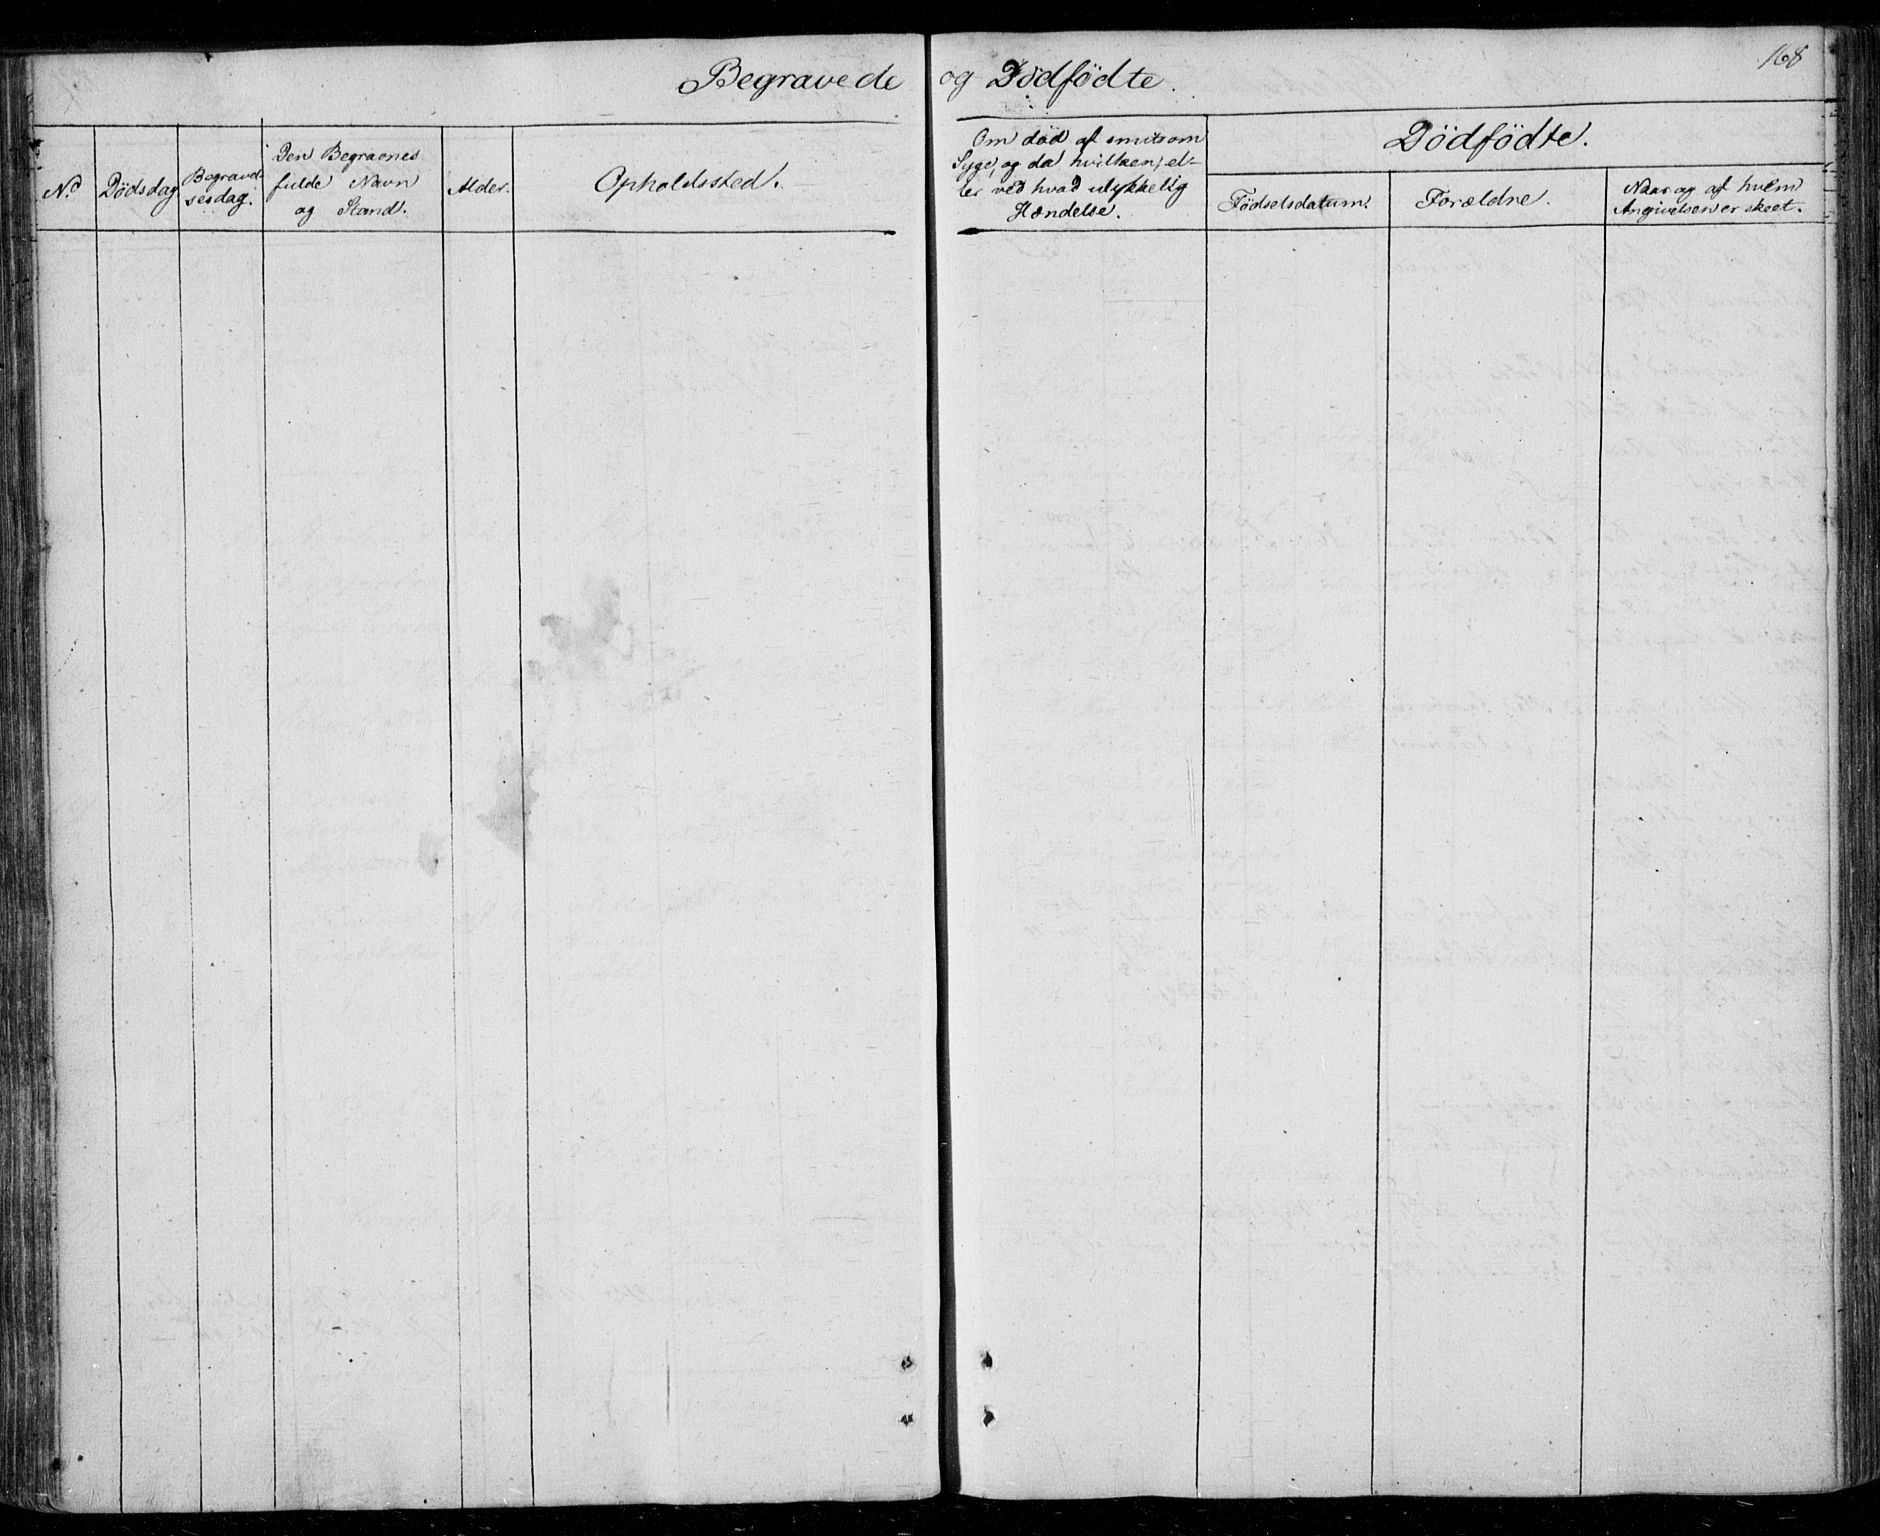 168
Begravede og Dödfödte.
No.
Dödsdag
Begravel-
sesdag.
Den Begravnes
fulde Navn
og Stand.
Alder.
Opholdssted.
Om död af smitsom
Syge, og da hvilken, el-
ler ved hvad ulykkelig
Hændelse.
Dödfödte.
Födselsdatum.
Forældre.
Naar og af hvem
Angivelsen er skeet.